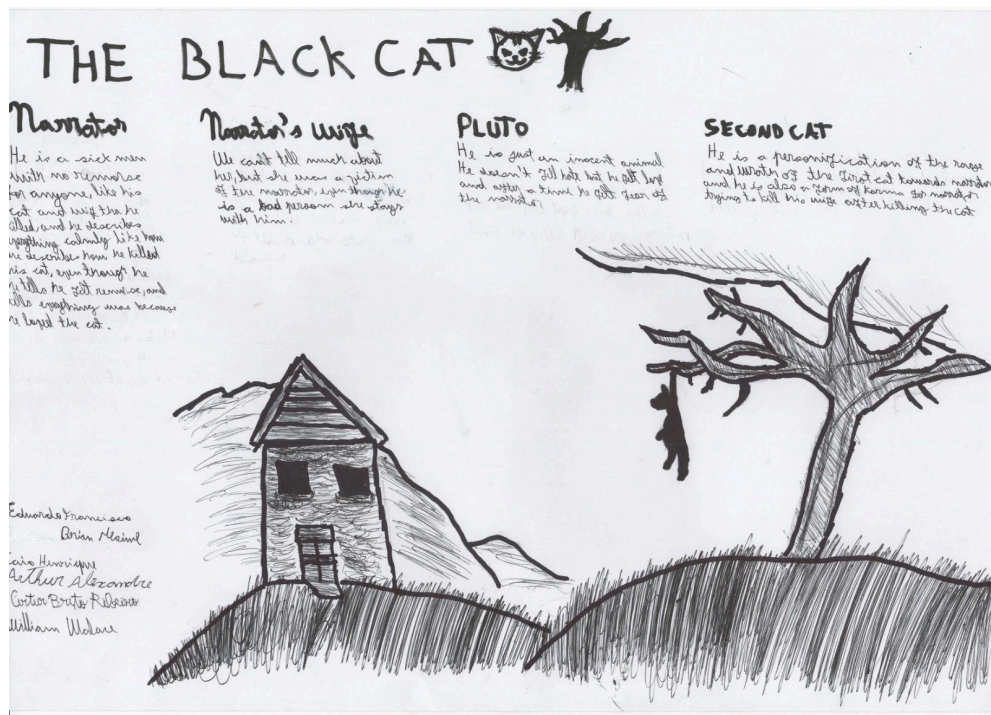 THE BLACK CAT
Narrator
He is a sick men
with no remorse
for anyone, like his
cat and wife tha he
killed, and he describes
everything calmly like how
he describes how he killed
his cat, even though he
tells he felt remorse, and
tells everything was because
he loved the cat.
Narrator's wife
We can't tell much about
her, but she was a victim
of the narrator, even though he
is a bad person she stays
with him.
PLUTO
He is just an inocent animal
He doesn't fill hate but he felt love
and after a time he felt fear of
the narrator
SECOND CAT
He is a personification of the rage
and wrath of the first cat towards narrator
and he is also a form of karma for narrator
trying to kill his wife after killing the cat
Eduardo Francisco
Brian
Caio Henrique
Arthur Alexandre
Brito Ribeiro
William